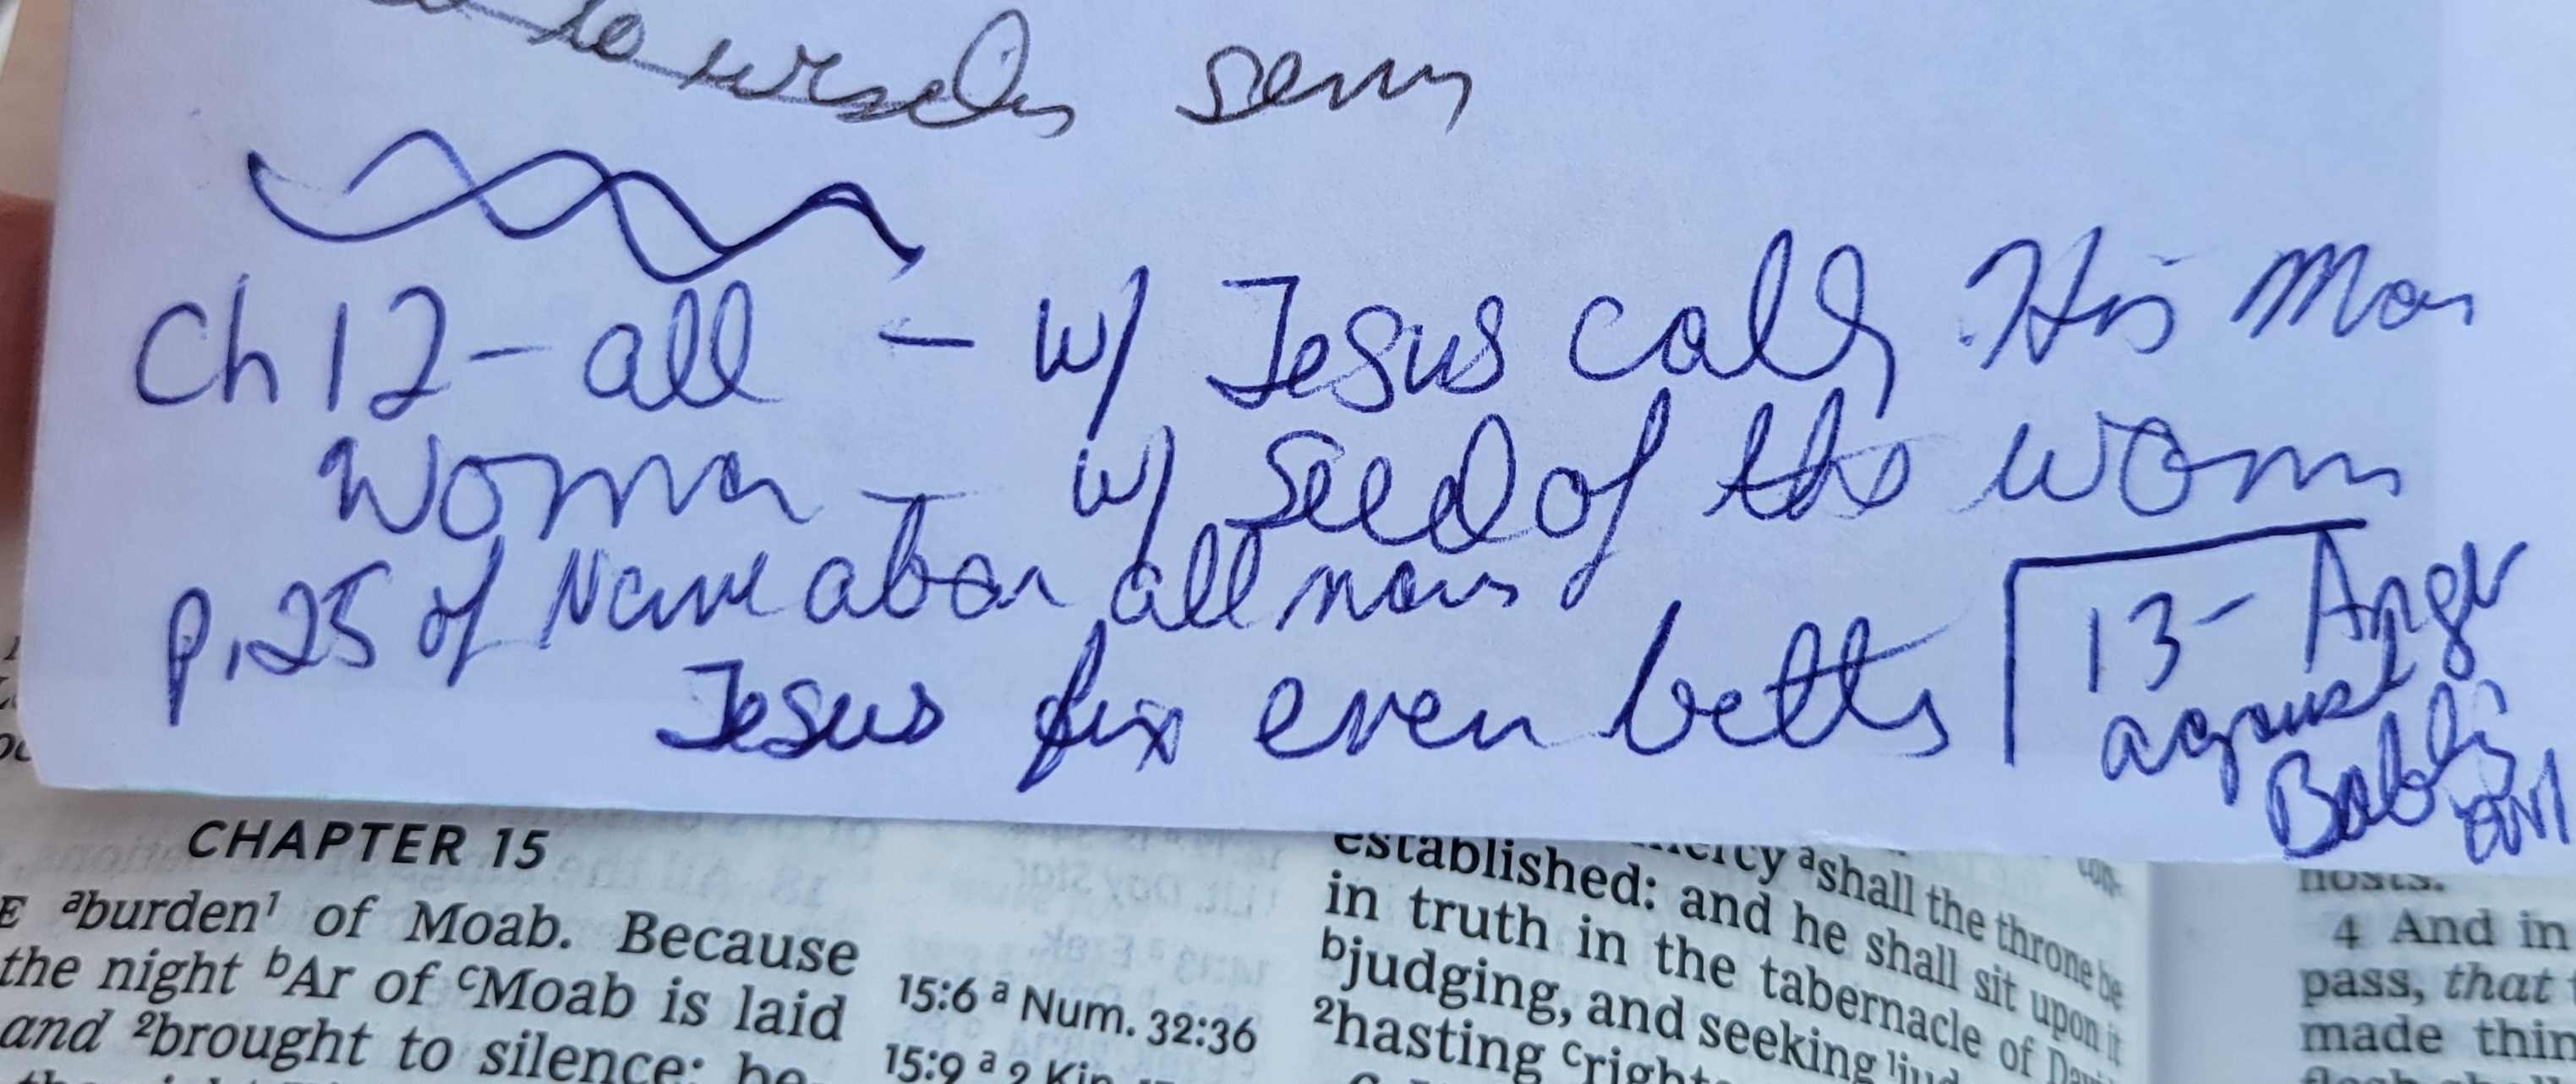 to serve
Ch 12 - all - w/ Jesus calls His Mom
Woman - w/ Seed of the woman
p. 25 of Name above all names
Jesus fix even betts
13 - Anger
against
Babby
evil
CHAPTER 15
E ᵃburden¹ of Moab. Because
the night ᵇAr of ᶜMoab is laid
and ²brought to silence; be-
15:6 ᵃ Num. 32:36
15:9 ᵃ 2 Kin.
mercy ᵃshall the throne be
established: and he shall sit upon it
in truth in the tabernacle of David
ᵇjudging, and seeking
²hasting
hosts.
4 And in
pass, that
made thin